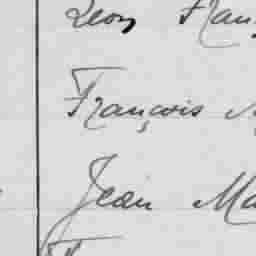 Leon Fran
François
Jean Ma